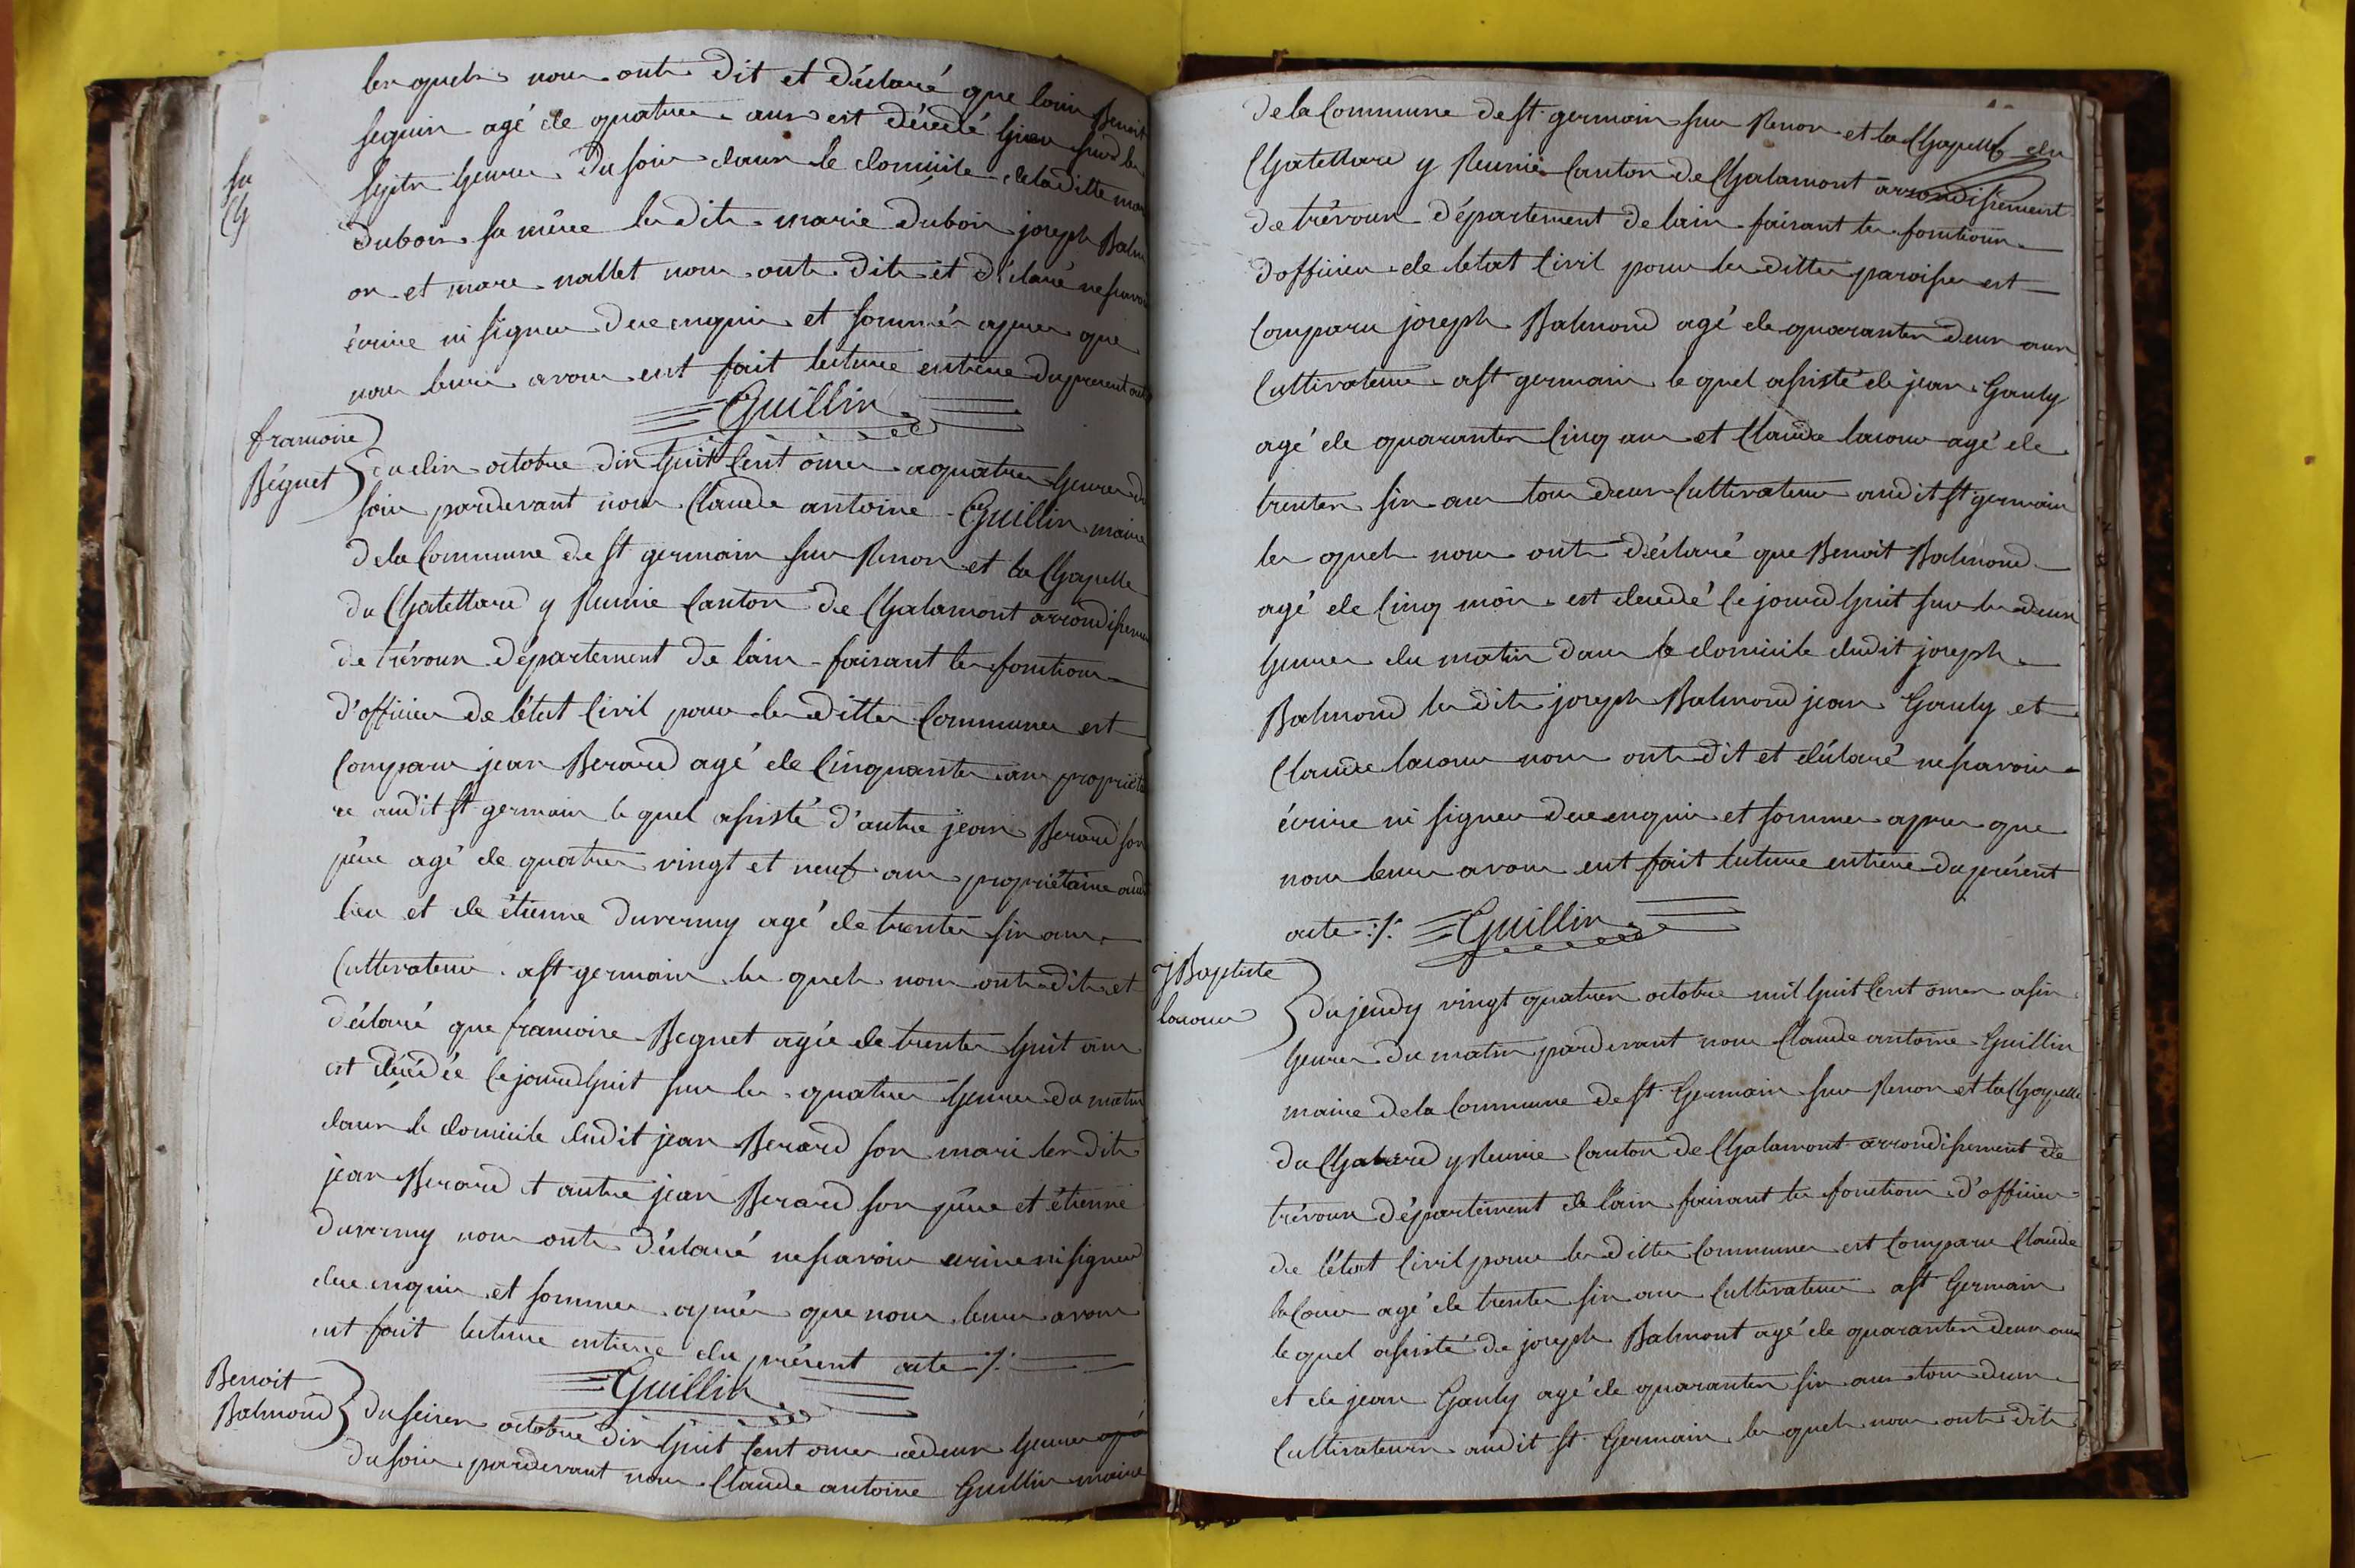 les quels nous ont dit et déclaré que louis Benoit
seguin agé de quatre ans est décédé hier sur les
septs heures du soir dans le domicile de laditte marie
dubois sa mère les dits marie dubois joseph Balm
on et marc nallet nous ont dits et déclaré ne savoir
écrire ni signer de ce enquis et sommés apres que
nous leurs avons eut fait lecture entière du present acte
Guillin
francoise
Béguet
du dix octobre dix huit cent onze a quatre heures du
soir pardevant nous Claude antoine Guillin maire
de la Commune de st germain sur Renon et la Chapelle
du Chatellard y Reunie Canton de Chalamont arrondissement
de trévoux département de lain faisant les fonctions
d'officier de l'état Civil pour les dittes Communes est
Comparu jean Berard agé de Cinquante ans propriétai
re audit st germain le quel assisté d'autre jean Berard son
père agé de quatre vingt et neuf ans propriétaire audit
lieu et de étienne duverny agé de trente six ans
Cultivateur a st germain les quels nous ont dit et
déclaré que francoise Beguet agée de trente huit ans
est décédée Ce jourdhuit sur les quatre heures du matin
dans le domicile dudit jean Berard son mari les dits
jean Berard et autre jean Berard son père et étienne
duverny nous onts déclaré ne savoir ecrire ni signer
de ce enquis et sommes après que nous leurs avons
eut fait lecture entière du présent acte ./.
Guillin
Benoit
Balmond
du seizer octobre dix huit Cent onze a deux heures
du soir pardevant nous Claude antoine Guillin maire
de la Commune de st germain sur Renon et la Chapelle du
Chatellard y Reunie Canton de Chalamont arrondissement
de trévoux département de lain faisant les fonctions
d'officier de letat Civil pour les dittes paroisses est
Comparu joseph Balmond agé de quarantes deux ans
Cultivateur a st germain le quel assisté de jean Gauly
agé de quarantes Cinq ans et Claude lacour agé de
trentes six ans tous deux Cultivateur audit st germain
les quels nous onts déclaré que Benoit Balmond
agé de Cinq mois est decedé Ce jourdhuit sur les deux
heures du matin dans le domicile dudit joseph
Balmond les dits joseph Balmond jean Gauly et
Claude lacour nous onts dit et déclaré ne savoir
écrire ni signer de ce enquis et sommes apres que
nous leurs avons eut fait lecture entière du présent
acte ./. Guillin
J Baptiste
lacour
du jeudy vingt quatres octobre mil huit Cent onze a six
heures du matin pardevant nous Claude antoine Guillin
maire de la Commune de st Germain sur Renon et la Chapelle
du Chatelard y Reunie Canton de Chalamont arrondissement de
trévoux département de lain faisant les fonctions d'officier
de l'état Civil pour les dittes Communes est Comparu Claude
la Cour agé de trente six ans Cultivateur a st Germain
lequel assisté de joseph Balmont agé de quarantes deux ans
et de jean Gauly agé de quarantes six ans tous deux
Cultivateurs audit st Germain les quels nous onts dits